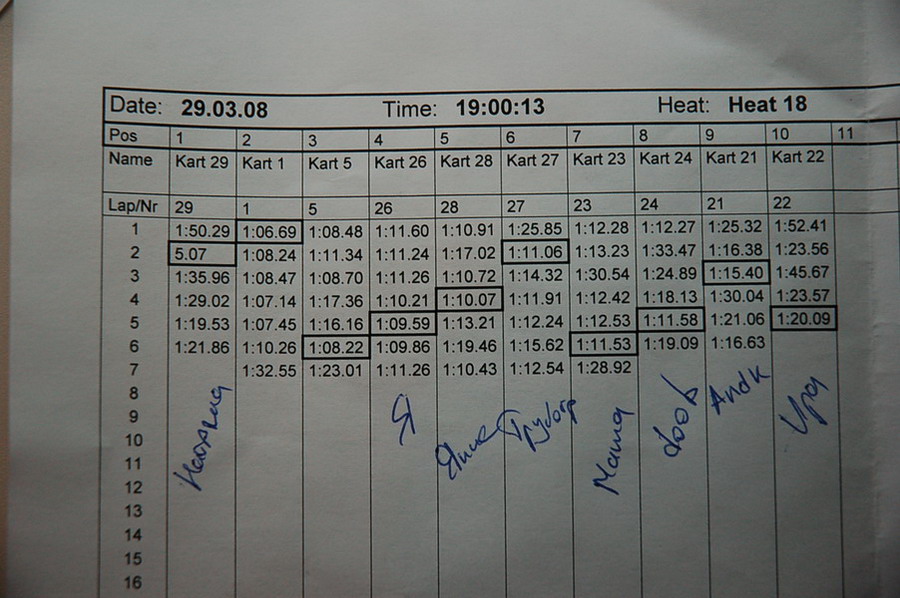 Date: 29.03.08 Time: 19:00:13 Heat: Heat 18
Pos 1 2 3 4 5 6 7 8 9 10 11
Name Kart 29 Kart 1 Kart 5 Kart 26 Kart 28 Kart 27 Kart 23 Kart 24 Kart 21 Kart 22
Lap/Nr 29 1 5 26 28 27 23 24 21 22
1 1:50.29 1:06.69 1:08.48 1:11.60 1:10.91 1:25.85 1:12.28 1:12.27 1:25.32 1:52.41
2 5.07 1:08.24 1:11.34 1:11.24 1:17.02 1:11.06 1:13.23 1:33.47 1:16.38 1:23.56
3 1:35.96 1:08.47 1:08.70 1:11.26 1:10.72 1:14.32 1:30.54 1:24.89 1:15.40 1:45.67
4 1:29.02 1:07.14 1:17.36 1:10.21 1:10.07 1:11.91 1:12.42 1:18.13 1:30.04 1:23.57
5 1:19.53 1:07.45 1:16.16 1:09.59 1:13.21 1:12.24 1:12.53 1:11.58 1:21.06 1:20.09
6 1:21.86 1:10.26 1:08.22 1:09.86 1:19.46 1:15.62 1:11.53 1:19.09 1:16.63
7 1:32.55 1:23.01 1:11.26 1:10.43 1:12.54 1:28.92
8
9
10
11
12
13
14
15
16
Я
Маша
Andk
Ира